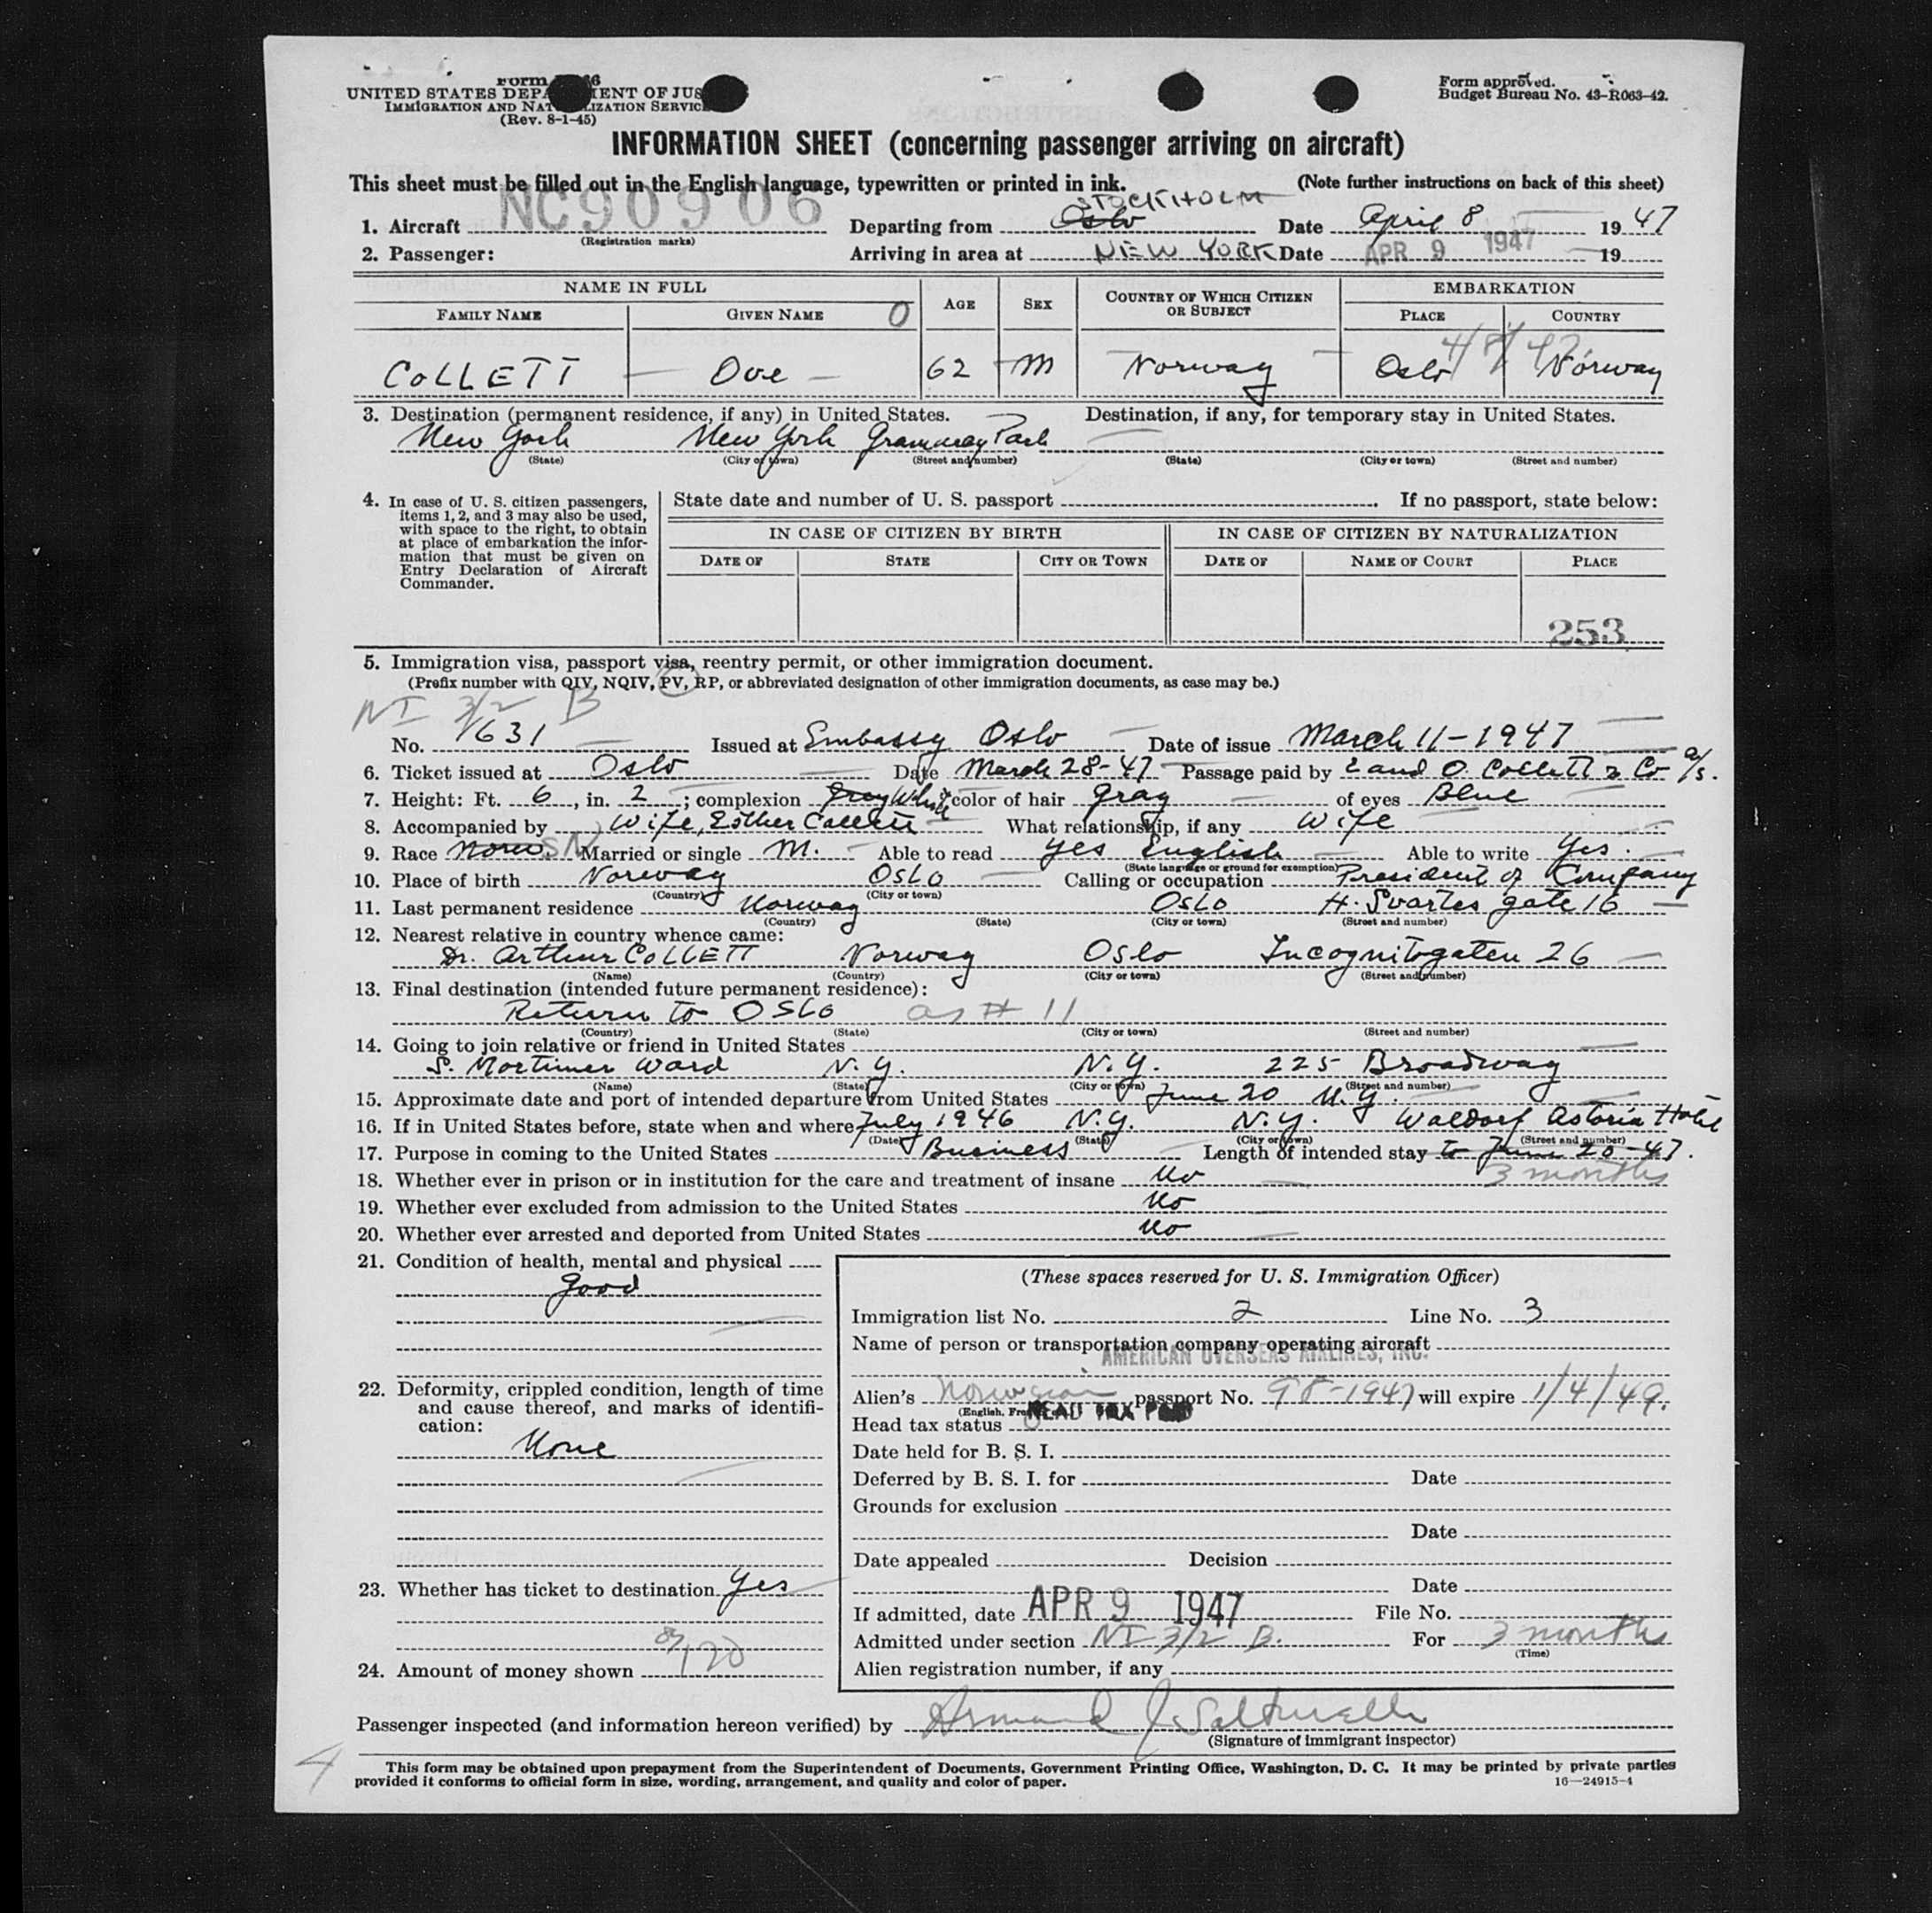 Form
UNITED STATES DEPA ENT OF JUS
IMMIGRATION AND NAT LIZATION SERVIC
(Rev. 8-1-45)
Form approved.
Budget Bureau No. 43-R063-42.
INFORMATION SHEET (concerning passenger arriving on aircraft)
This sheet must be filled out in the English language, typewritten or printed in ink. (Note further instructions on back of this sheet)
STOCKHOLM
1. Aircraft NC90906 Departing from Oslo Date April 8 1947
(Registration marks)
2. Passenger: Arriving in area at NEW YORK Date APR 9 1947 19
NAME IN FULL AGE SEX COUNTRY OF WHICH CITIZEN OR SUBJECT EMBARKATION
FAMILY NAME GIVEN NAME O PLACE COUNTRY
4/8/47
COLLETT Ove 62 M Norway Oslo Norway
3. Destination (permanent residence, if any) in United States. Destination, if any, for temporary stay in United States.
New York New York Gramercy Park
(State) (City or town) (Street and number) (State) (City or town) (Street and number)
4. In case of U. S. citizen passengers, items 1, 2, and 3 may also be used, with space to the right, to obtain at place of embarkation the information that must be given on Entry Declaration of Aircraft Commander.
State date and number of U. S. passport If no passport, state below:
IN CASE OF CITIZEN BY BIRTH IN CASE OF CITIZEN BY NATURALIZATION
DATE OF STATE CITY OR TOWN DATE OF NAME OF COURT PLACE
253
5. Immigration visa, passport visa, reentry permit, or other immigration document.
(Prefix number with QIV, NQIV, PV, RP, or abbreviated designation of other immigration documents, as case may be.)
NI 3/2 B
No. 1631 Issued at Embassy Oslo Date of issue March 11-1947
6. Ticket issued at Oslo Date March 28-47 Passage paid by O. Collett & Co a/s.
7. Height: Ft. 6, in. 2; complexion White color of hair Gray of eyes Blue
8. Accompanied by Wife, Esther Collett What relationship, if any Wife
9. Race Norw. SN Married or single M. Able to read Yes English Able to write Yes.
(State language or ground for exemption)
10. Place of birth Norway OSLO Calling or occupation President of Company
(Country) (City or town)
11. Last permanent residence Norway OSLO H. Svartes gate 16
(Country) (State) (City or town) (Street and number)
12. Nearest relative in country whence came:
Dr. Arthur COLLETT Norway OSLO Incognitogaten 26
(Name) (Country) (City or town) (Street and number)
13. Final destination (intended future permanent residence):
Return to OSLO as # 11
(Country) (State) (City or town) (Street and number)
14. Going to join relative or friend in United States
S. Mortimer Ward N.Y. N.Y. 225 Broadway
(Name) (State) (City or town) (Street and number)
15. Approximate date and port of intended departure from United States June 20 N.Y.
16. If in United States before, state when and where July 1946 N.Y. N.Y. Waldorf Astoria Hotel
(Date) (State) (City or town) (Street and number)
17. Purpose in coming to the United States Business Length of intended stay to June 20-47.
3 months
18. Whether ever in prison or in institution for the care and treatment of insane No
19. Whether ever excluded from admission to the United States No
20. Whether ever arrested and deported from United States No
21. Condition of health, mental and physical
Good
22. Deformity, crippled condition, length of time and cause thereof, and marks of identification:
None
23. Whether has ticket to destination Yes
24. Amount of money shown
(These spaces reserved for U. S. Immigration Officer)
Immigration list No. 2 Line No. 3
Name of person or transportation company operating aircraft
AMERICAN OVERSEAS AIRLINES, INC.
Alien's Norwegian passport No. 98-1947 will expire 1/4/49.
Head tax status HEAD TAX PAID
Date held for B. S. I.
Deferred by B. S. I. for Date
Grounds for exclusion
Date
Date appealed Decision
Date
If admitted, date APR 9 1947 File No.
Admitted under section NI 3/2 B. For 3 months
(Time)
Alien registration number, if any
Passenger inspected (and information hereon verified) by Armand J.
(Signature of immigrant inspector)
4
This form may be obtained upon prepayment from the Superintendent of Documents, Government Printing Office, Washington, D. C. It may be printed by private parties
provided it conforms to official form in size, wording, arrangement, and quality and color of paper. 16—24915-4